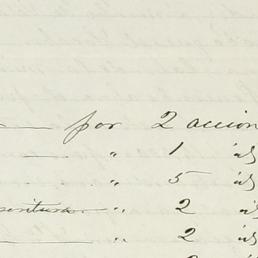 por 2 accion
" 1 id
" 5 id
" 2 id
" 2 id